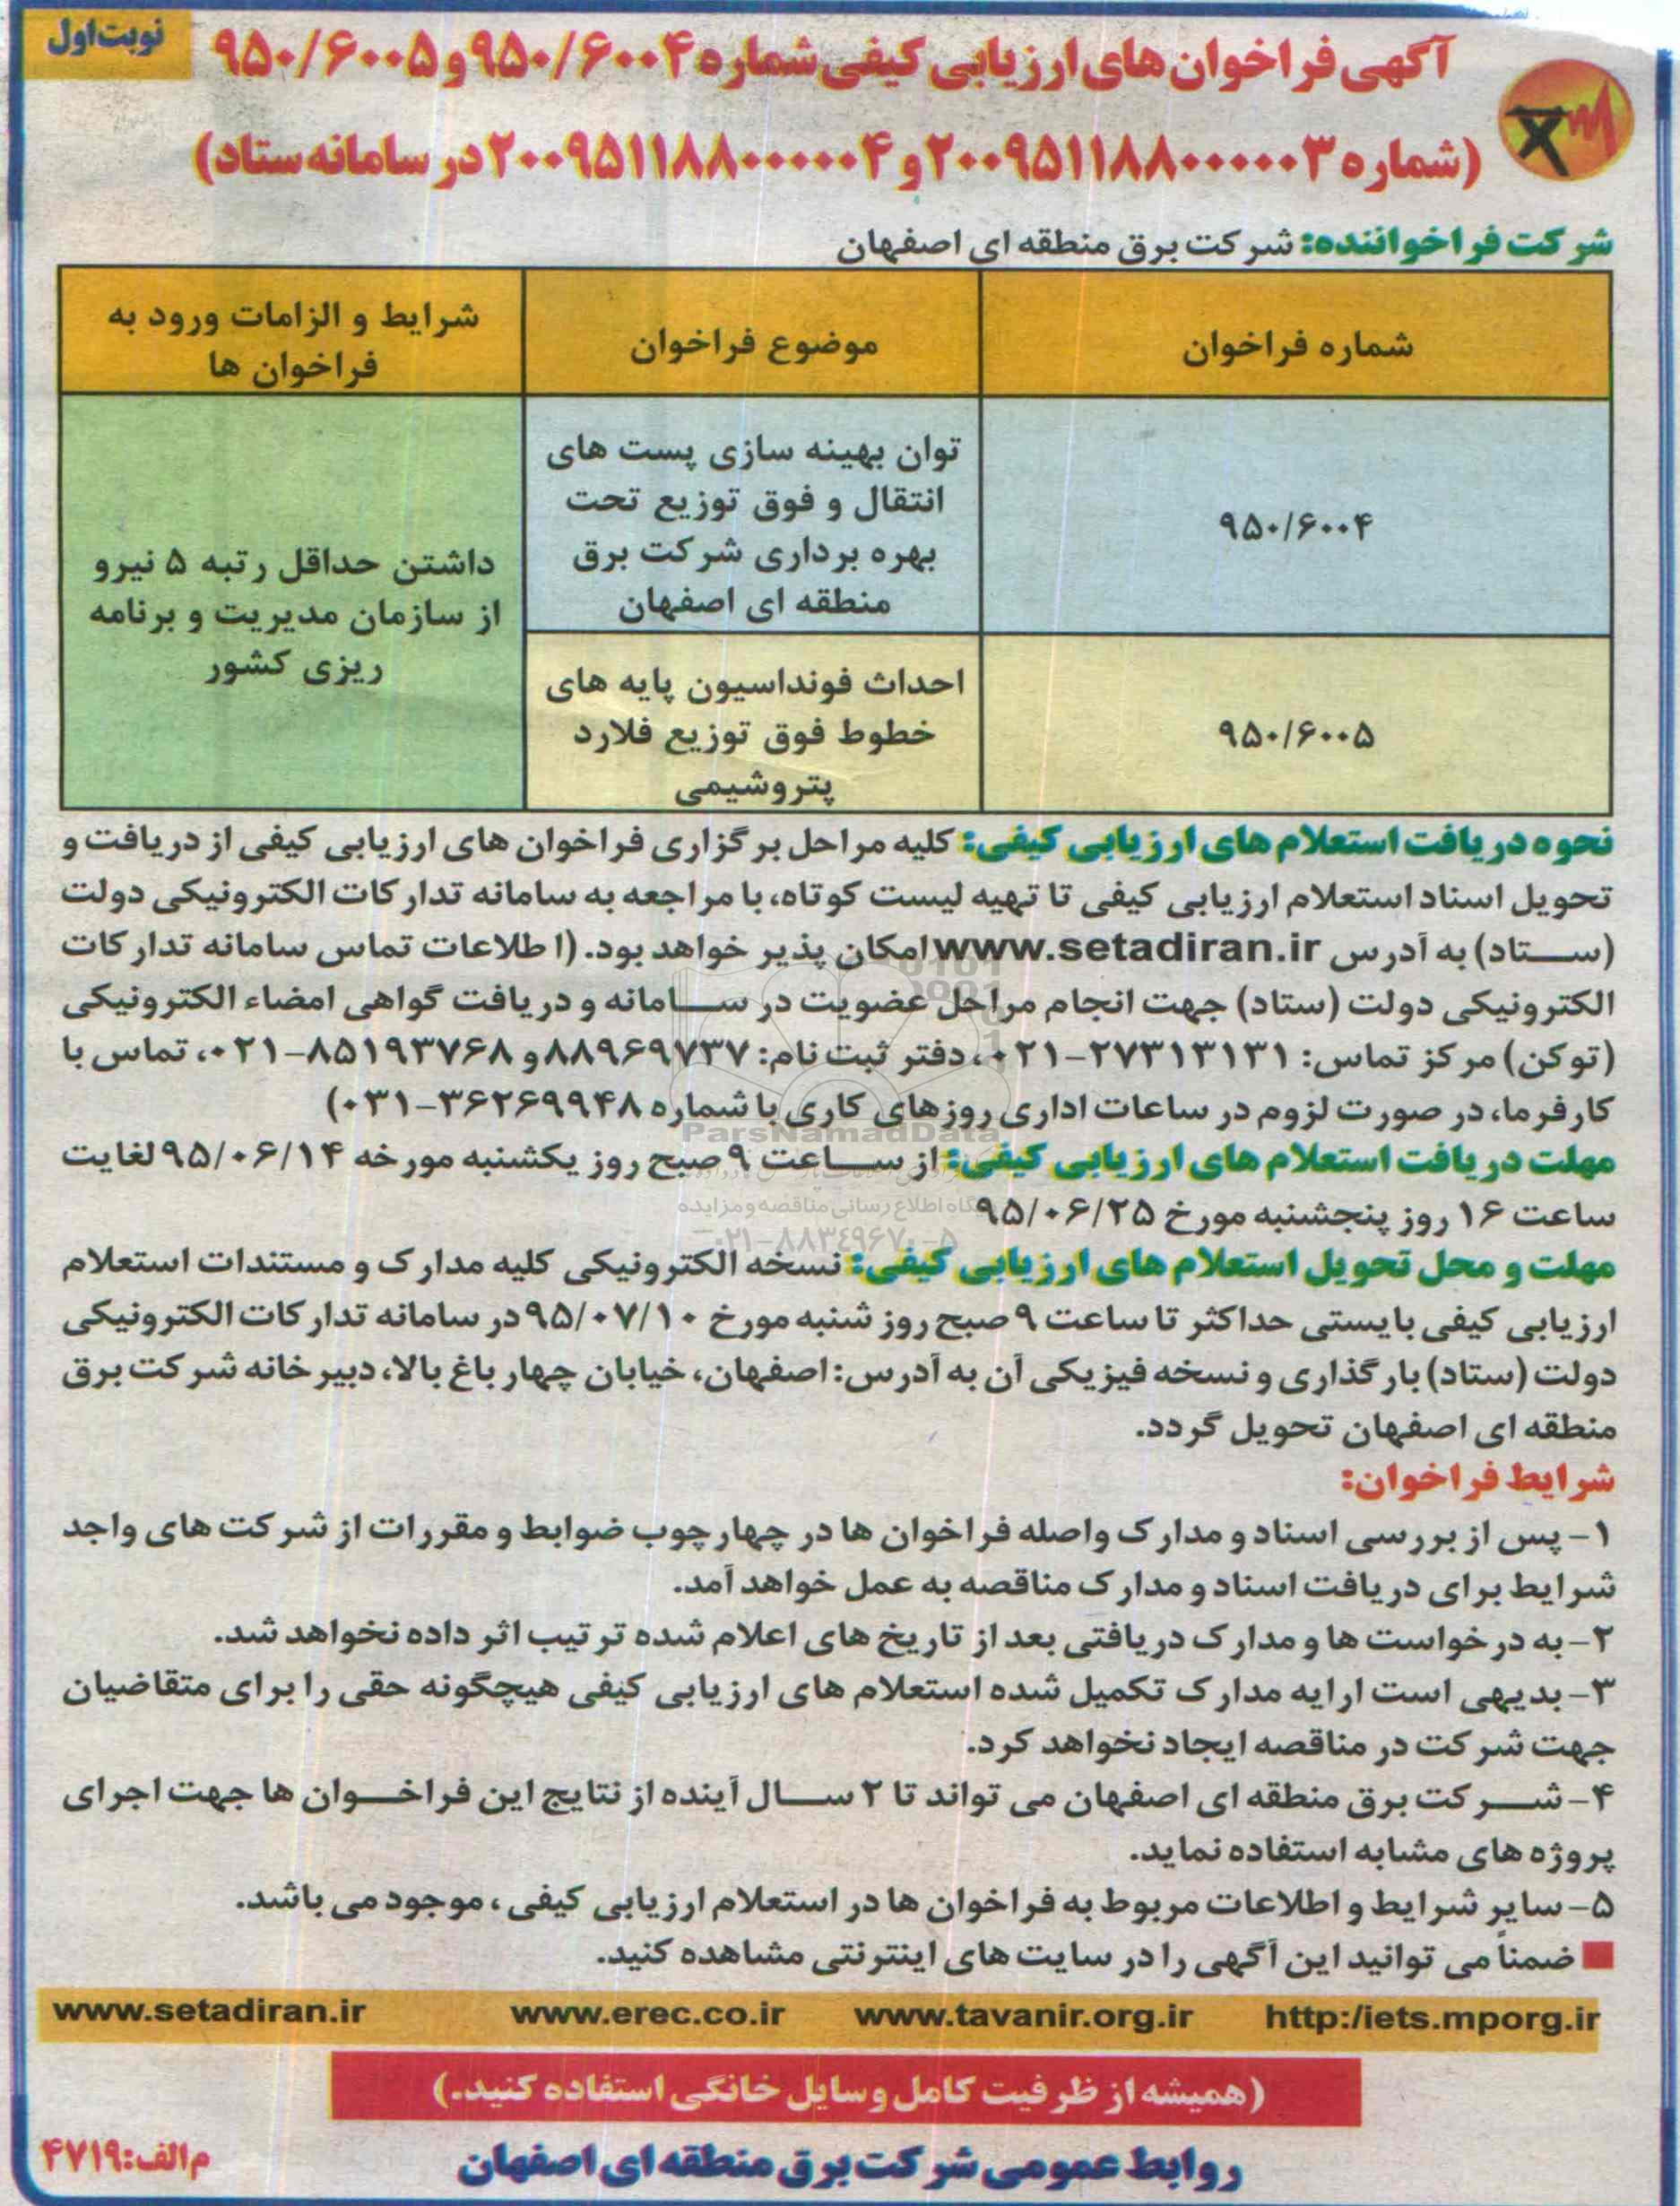 نوبت اول
آگهی فراخوان های ارزیابی کیفی شماره ۹۵۰/۶۰۰۴ و ۹۵۰/۶۰۰۵
(شماره ۲۰۰۹۵۱۱۸۸۰۰۰۰۰۳ و ۲۰۰۹۵۱۱۸۸۰۰۰۰۰۴ در سامانه ستاد)
شرکت فراخواننده: شرکت برق منطقه ای اصفهان
شماره فراخوان
موضوع فراخوان
شرایط و الزامات ورود به
فراخوان ها
۹۵۰/۶۰۰۴
توان بهینه سازی پست های
انتقال و فوق توزیع تحت
بهره برداری شرکت برق
منطقه ای اصفهان
داشتن حداقل رتبه ۵ نیرو
از سازمان مدیریت و برنامه
ریزی کشور
۹۵۰/۶۰۰۵
احداث فونداسیون پایه های
خطوط فوق توزیع فلارد
پتروشیمی
نحوه دریافت استعلام های ارزیابی کیفی: کلیه مراحل برگزاری فراخوان های ارزیابی کیفی از دریافت و
تحویل اسناد استعلام ارزیابی کیفی تا تهیه لیست کوتاه، با مراجعه به سامانه تدارکات الکترونیکی دولت
(ستاد) به آدرس www.setadiran.ir امکان پذیر خواهد بود. (اطلاعات تماس سامانه تدارکات
الکترونیکی دولت (ستاد) جهت انجام مراحل عضویت در سامانه و دریافت گواهی امضاء الکترونیکی
(توکن) مرکز تماس: ۲۷۳۱۳۱۳۱-۰۲۱، دفتر ثبت نام: ۸۸۹۶۹۷۳۷ و ۸۵۱۹۳۷۶۸-۰۲۱، تماس با
کارفرما، در صورت لزوم در ساعات اداری روزهای کاری با شماره ۳۶۲۶۹۹۴۸-۰۳۱)
ParsNamadData
مهلت دریافت استعلام های ارزیابی کیفی: از ساعت ۹ صبح روز یکشنبه مورخه ۹۵/۰۶/۱۴ لغایت
ساعت ۱۶ روز پنجشنبه مورخ ۹۵/۰۶/۲۵
پایگاه اطلاع رسانی مناقصه و مزایده
۰۲۱-۸۸۳۴۹۶۷۰-۵
مهلت و محل تحویل استعلام های ارزیابی کیفی: نسخه الکترونیکی کلیه مدارک و مستندات استعلام
ارزیابی کیفی بایستی حداکثر تا ساعت ۹ صبح روز شنبه مورخ ۹۵/۰۷/۱۰ در سامانه تدارکات الکترونیکی
دولت (ستاد) بارگذاری و نسخه فیزیکی آن به آدرس: اصفهان، خیابان چهار باغ بالا، دبیرخانه شرکت برق
منطقه ای اصفهان تحویل گردد.
شرایط فراخوان:
۱- پس از بررسی اسناد و مدارک واصله فراخوان ها در چهارچوب ضوابط و مقررات از شرکت های واجد
شرایط برای دریافت اسناد و مدارک مناقصه به عمل خواهد آمد.
۲- به درخواست ها و مدارک دریافتی بعد از تاریخ های اعلام شده ترتیب اثر داده نخواهد شد.
۳- بدیهی است ارایه مدارک تکمیل شده استعلام های ارزیابی کیفی هیچگونه حقی را برای متقاضیان
جهت شرکت در مناقصه ایجاد نخواهد کرد.
۴- شرکت برق منطقه ای اصفهان می تواند تا ۲ سال آینده از نتایج این فراخوان ها جهت اجرای
پروژه های مشابه استفاده نماید.
۵- سایر شرایط و اطلاعات مربوط به فراخوان ها در استعلام ارزیابی کیفی، موجود می باشد.
ضمناً می توانید این آگهی را در سایت های اینترنتی مشاهده کنید.
http:/iets.mporg.ir www.tavanir.org.ir www.erec.co.ir www.setadiran.ir
(همیشه از ظرفیت کامل وسایل خانگی استفاده کنید.)
روابط عمومی شرکت برق منطقه ای اصفهان
م الف: ۴۷۱۹